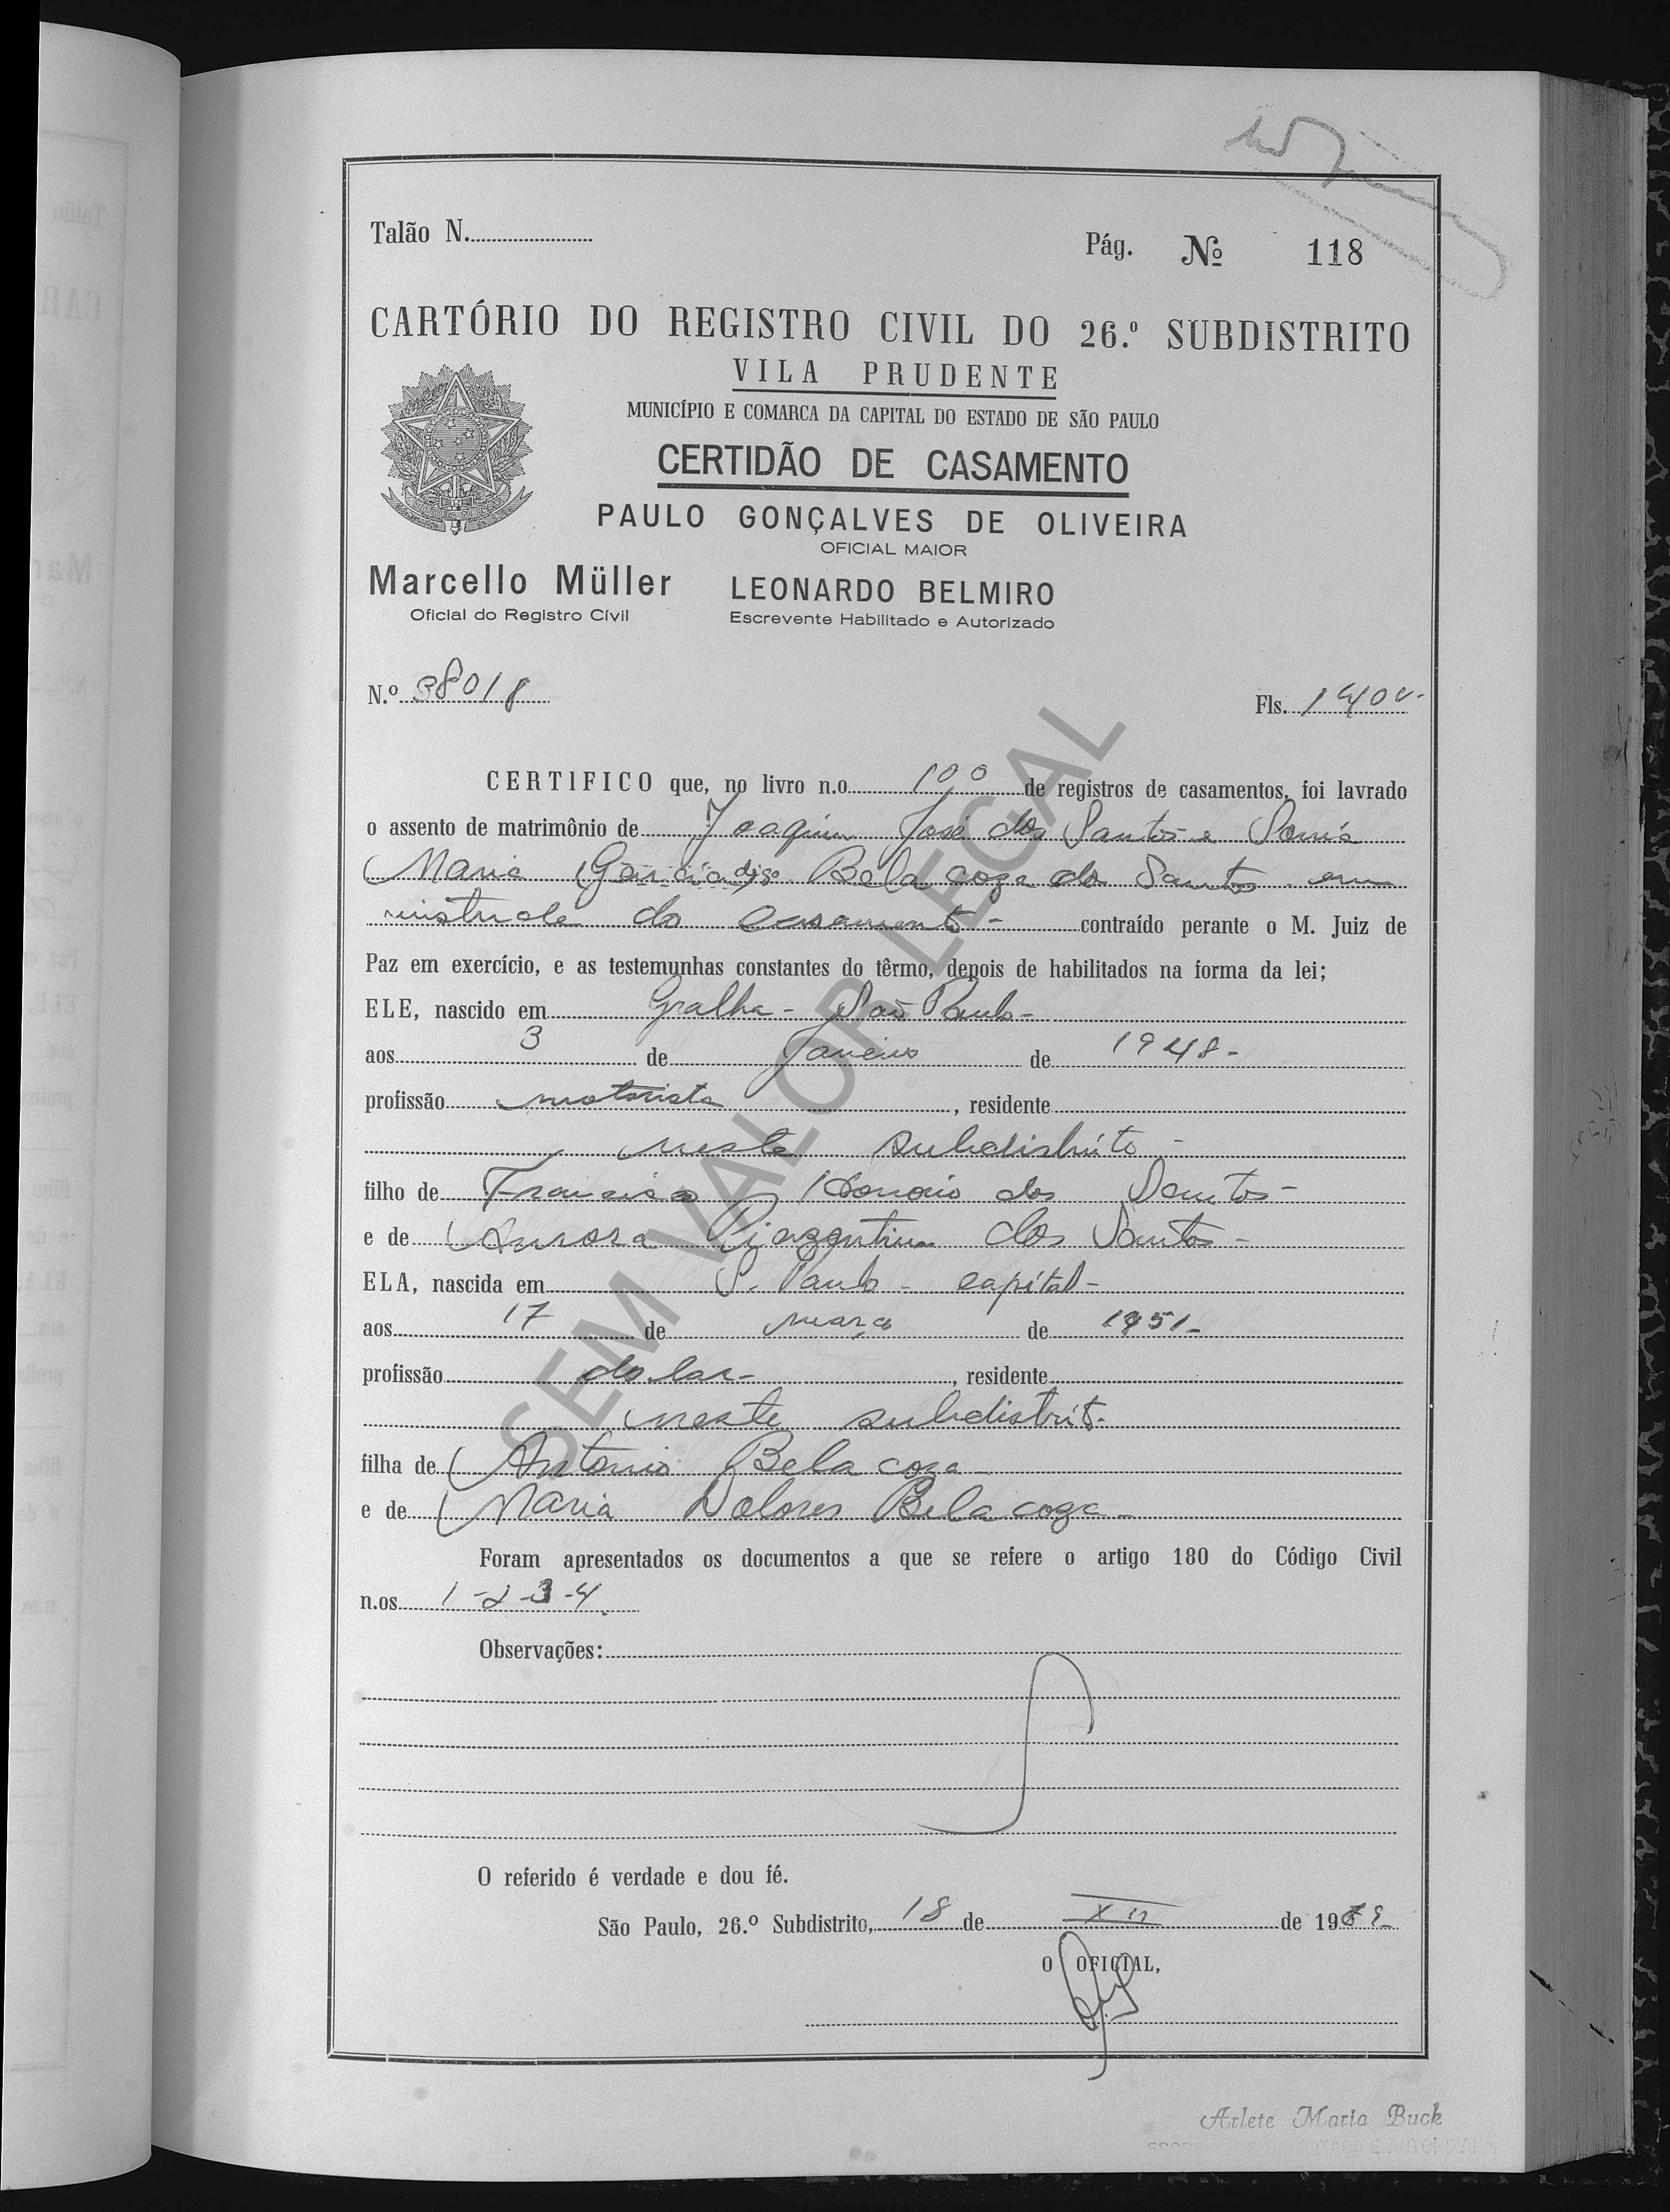 Talão N.
Pág. Nº 118
CARTÓRIO DO REGISTRO CIVIL DO 26.º SUBDISTRITO
VILA PRUDENTE
MUNICÍPIO E COMARCA DA CAPITAL DO ESTADO DE SÃO PAULO
CERTIDÃO DE CASAMENTO
PAULO GONÇALVES DE OLIVEIRA
OFICIAL MAIOR
Marcello Müller LEONARDO BELMIRO
Oficial do Registro Civil Escrevente Habilitado e Autorizado
N.º 38018 Fls. 140v-
CERTIFICO que, no livro n.o 100 de registros de casamentos, foi lavrado
o assento de matrimônio de Joaquim José dos Santos e Sonia
Maria Garcia Belacoza dos Santos em
do casamento - contraído perante o M. Juiz de
Paz em exercício, e as testemunhas constantes do têrmo, depois de habilitados na forma da lei;
ELE, nascido em Gralha - São Paulo -
aos 3 de Janeiro de 1948 -
profissão motorista, residente
neste subdistrito -
filho de Francisco dos Santos -
e de Aurora dos Santos -
ELA, nascida em S. Paulo - capital -
aos 17 de março de 1951 -
profissão do lar -, residente
neste subdistrito -
filha de Antonio Belacoza
e de Maria Dolores Belacoza -
Foram apresentados os documentos a que se refere o artigo 180 do Código Civil
n.os 1-2-3-4.
Observações:
O referido é verdade e dou fé.
São Paulo, 26.º Subdistrito, 18 de XII de 1969-
O OFICIAL,
Arlete Maria Buck
SEM VALOR LEGAL